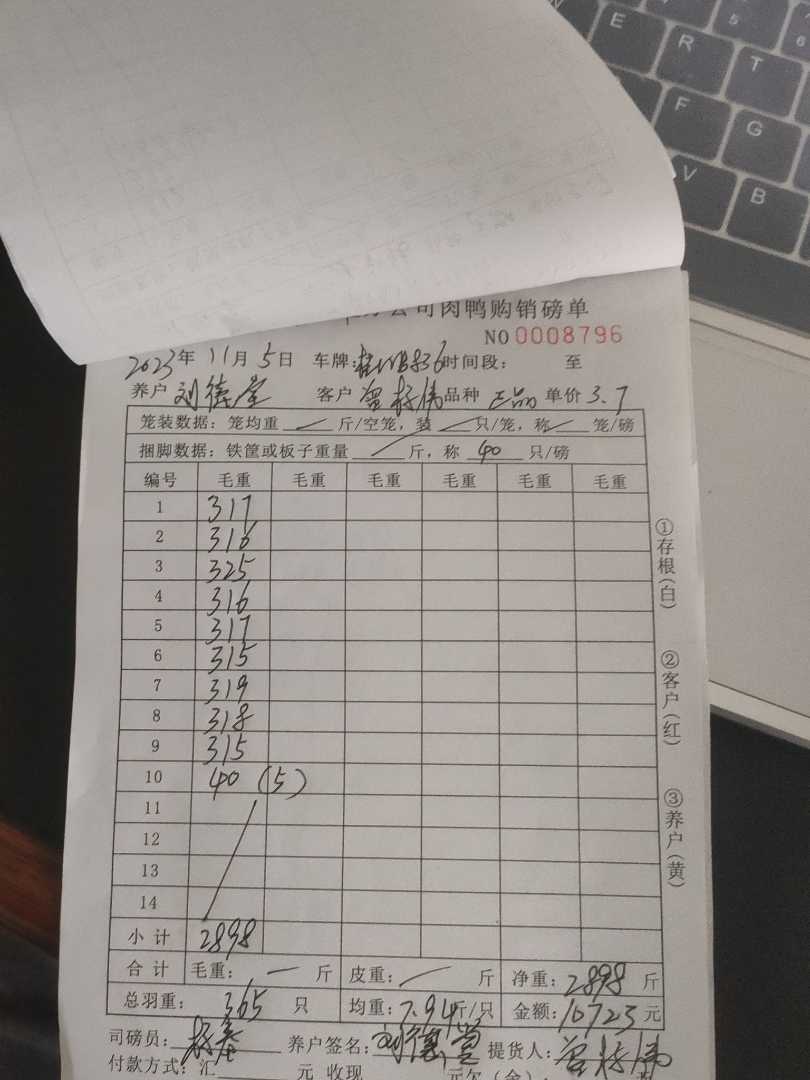 公司肉鸭购销磅单
NO 0008796
2023年 11月 5日 车牌: 836 时间段: 至
养户 刘德堂 客户 曾 伟 品种 正品 单价 3.7
笼装数据: 笼均重 斤/空笼, 装 只/笼, 称 笼/磅
捆脚数据: 铁筐或板子重量 斤, 称 40 只/磅
编号 毛重 毛重 毛重 毛重 毛重 毛重
1 317
2 316
3 325
4 316
5 317
6 315
7 319
8 318
9 315
10 40 (5)
11
12
13
14
小计 2898
合计 毛重: 一 斤 皮重: 斤 净重: 2898 斤
总羽重: 365 只 均重: 7.94 斤/只 金额: 10723 元
司磅员: 养户签名: 刘德堂 提货人: 曾 伟
付款方式: 汇 元 收现 元欠(余):
①存根(白)
②客户(红)
③养户(黄)
E
R
T
5
6
F
G
V
B